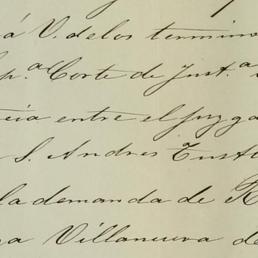 á V. de los termino
p.ª Corte de Just.ª
cia entre el juzga
S. Andres Tusto
la demanda de R
a Villanueva de